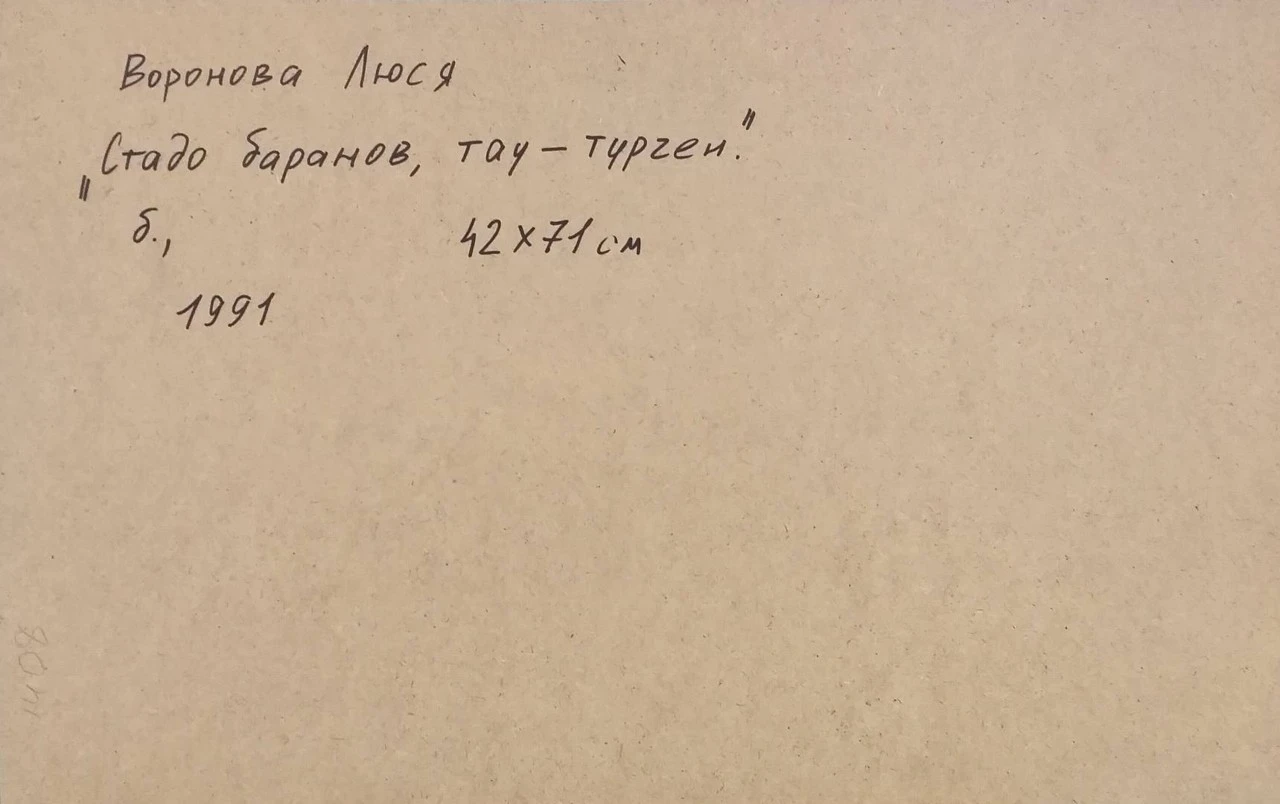 Воронова Люся
„Стадо баранов, тау – турген."
б., 42х71 см
1991